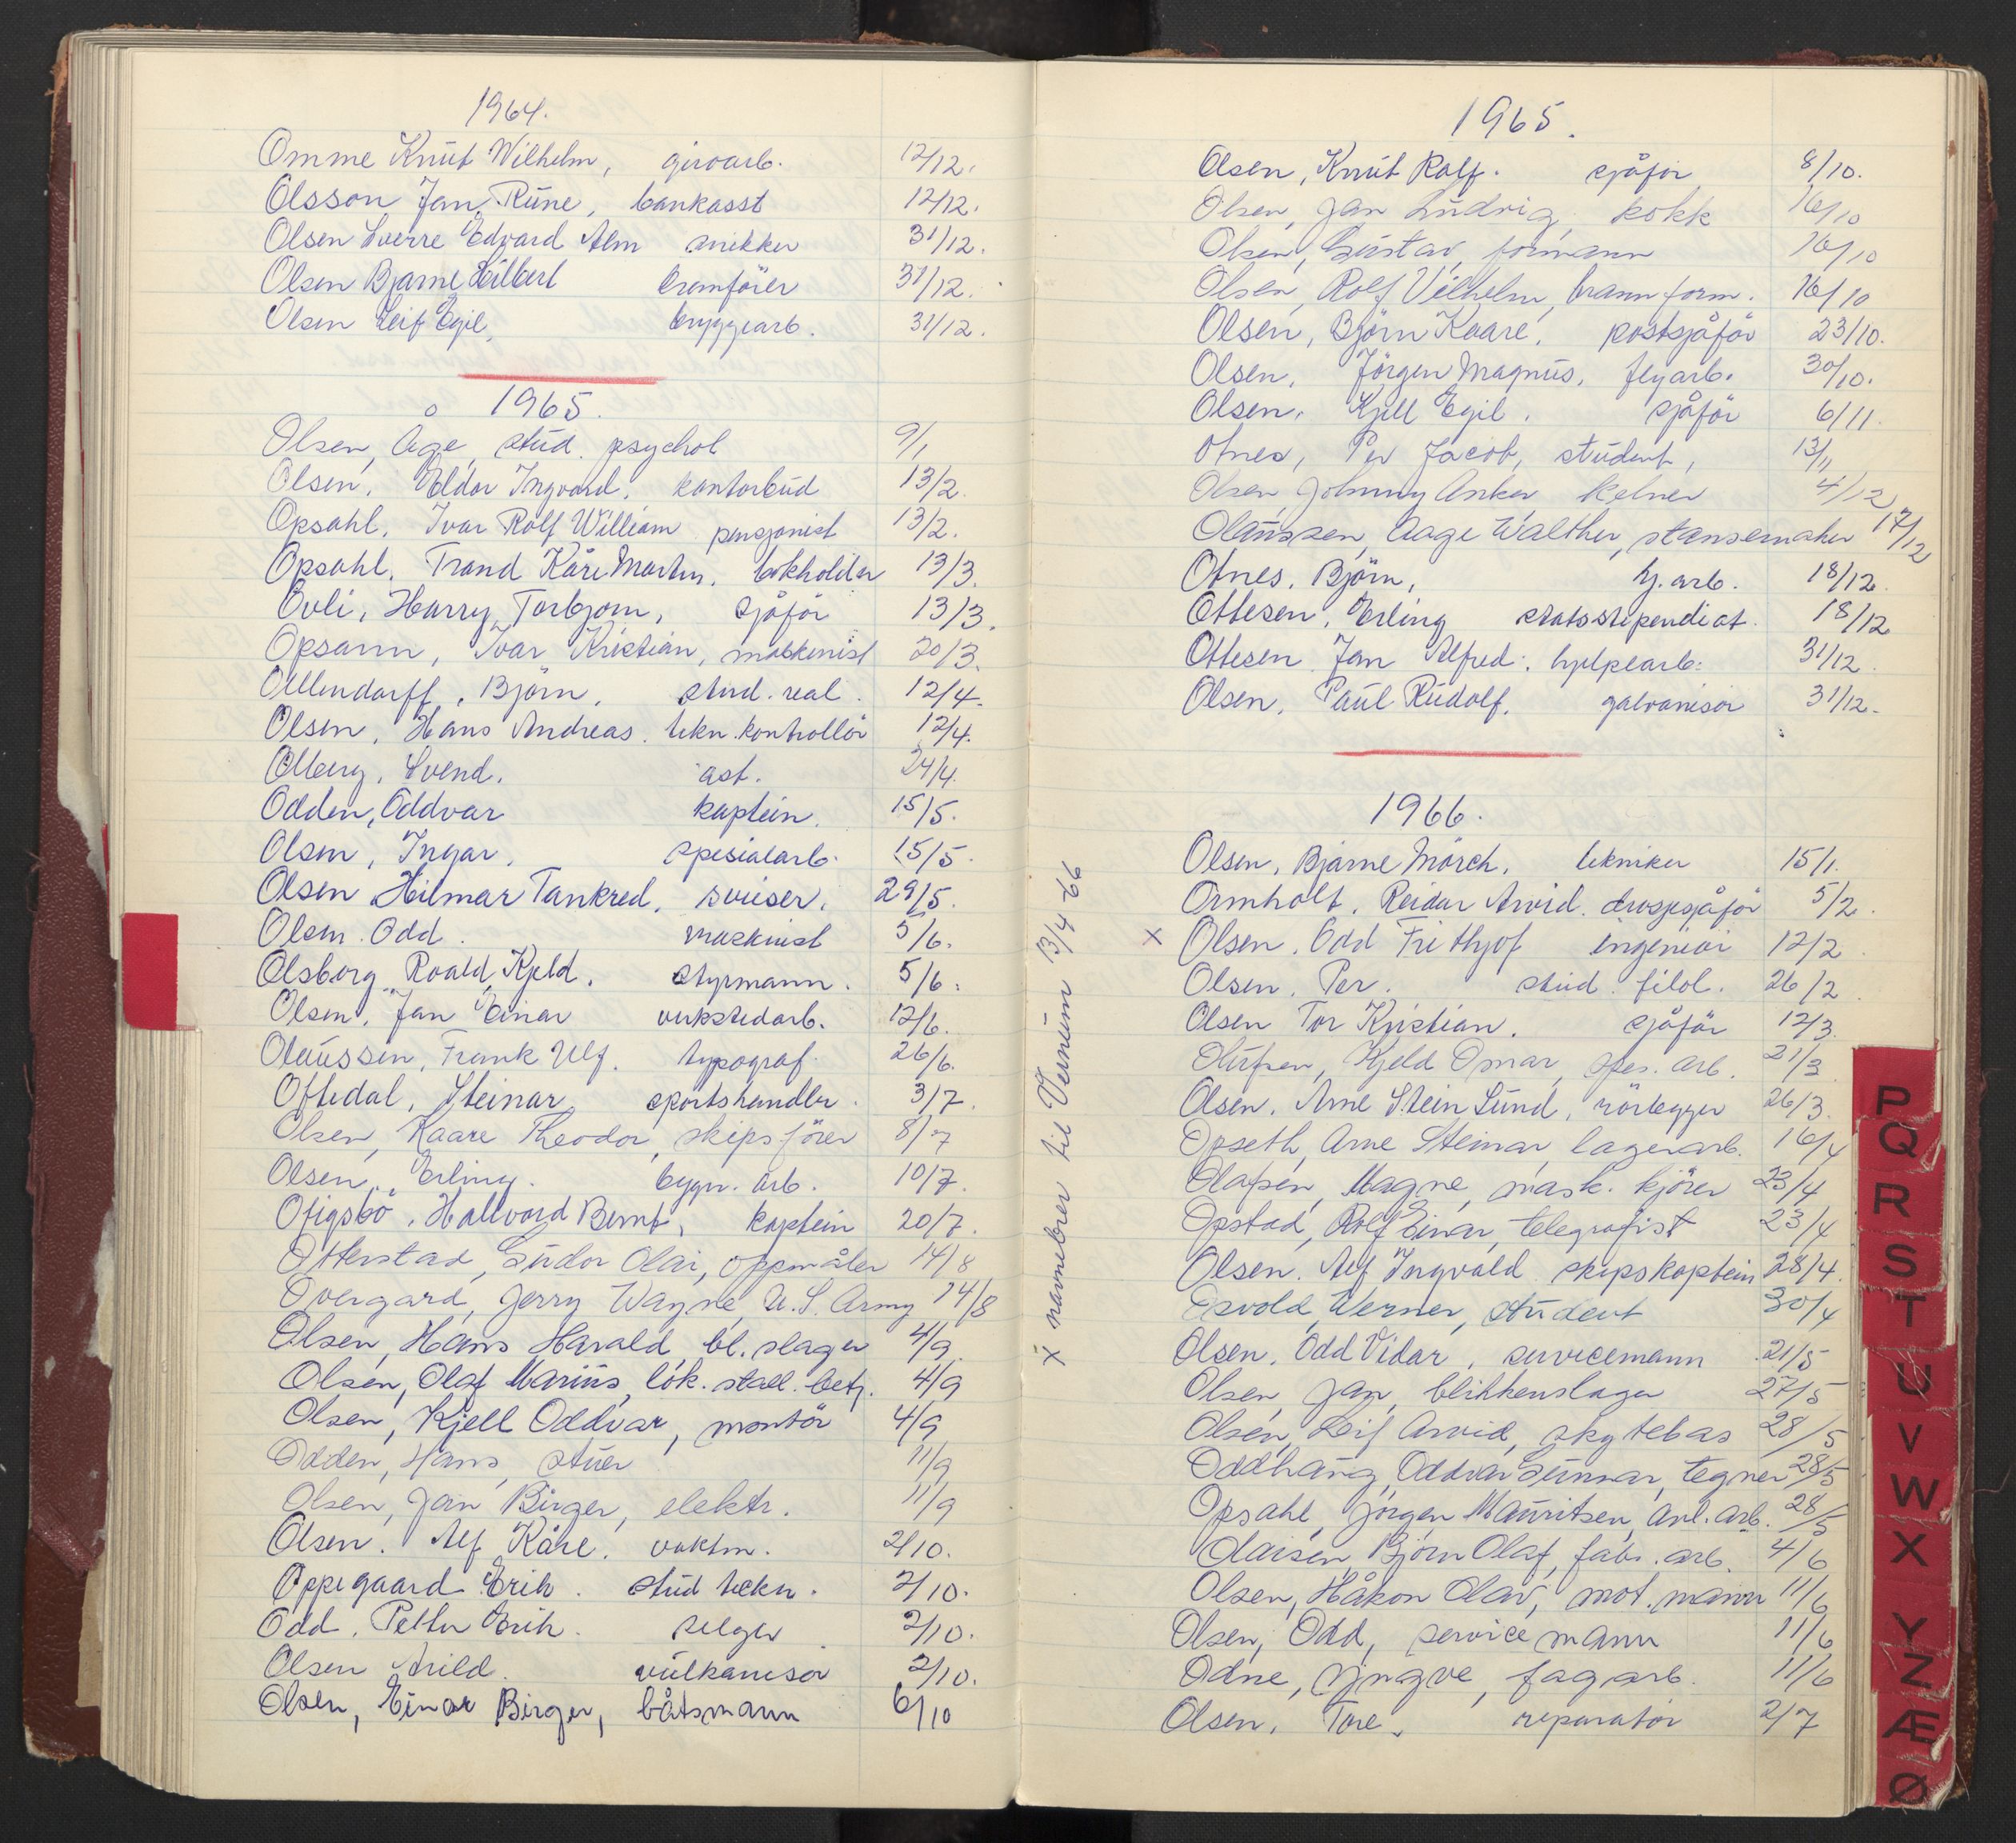 1964.
Omme Knut Wilhelm, giroarb. 12/12.
Olsson Jan Rune, bankasst 12/12.
Olsen Sverre Edvard Alm snekker 31/12.
Olsen Bjarne Hilbert kranfører 31/12.
Olsen Leif Egil, bryggearb. 31/12.
1965.
Olsen, Åge, stud. psychol 9/1
Olsen, Eldor Ingvard, kontorbud 13/2.
Opsahl, Ivar Rolf William pensjonist 13/2.
Opsahl, Trond Kåre Martin, bokholder 13/3.
Ovli, Harry Torbjorn, sjåför 13/3.
Opsann, Ivar Kristian, maskinist 20/3.
Ollendorff, Björn, stud. real. 12/4.
Olsen, Hans Andreas tekn. kontrollör 12/4.
Olberg, Svend, ast. 24/4.
Odden, Oddvar kaptein. 15/5.
Olsen, Ingar, spesialarb. 15/5.
Olsen Hilmar Tankred, sveiser. 29/5.
Olsen Odd. maskinist 5/6.
Olsborg Roald Kjeld, styrmann. 5/6.
Olsen, Jan Einar verkstedarb. 12/6.
Olaussen, Frank Ulf. typograf 26/6.
Oftedal, Steinar, sportshandler. 3/7.
Olsen, Kaare Theodor, skipsförer 8/7
Olsen, Erling. bygn. arb. 10/7.
Ofigsbö, Hallvard Bernt, kaptein 20/7.
Otterstad, Gudor Olai, oppmåler 14/8
Overgard, Jerry Wayne, U.S. Army 14/8
Olsen, Hans Harald bl. slager 4/9.
Olsen, Olaf Marius, lok. stall. betj. 4/9
Olsen, Kjell Oddvar, montör 4/9
Odden, Hans, stuer 11/9
Olsen, Jan Birger, elektr. 11/9
Olsen. Alf Kåre. vaktm. 2/10.
Oppegaard Erik. stud tekn. 2/10.
Odd, Petter Erik. selger 2/10.
Olsen Arild. vulkanisør 2/10.
Olsen, Einar Birger, båtsmann 6/10
x navnebrev til Verneum 13/4-66
1965.
Olsen, Knut Rolf. sjåför 8/10.
Olsen, Jan Ludvig, kokk 16/10
Olsen, Gustav, formann 16/10
Olsen, Rolf Vilhelm, brannform. 16/10
Olsen, Björn Kaare, postsjåför 23/10.
Olsen, Jörgen Magnus, flyarb. 30/10.
Olsen, Kjell Egil. sjåför 6/11.
Otnes, Per Jacob, student, 13/11
Olsen Johnny Anker kelner 4/12
Olaussen, Aage Walther, stansemaker 17/12
Otnes, Björn, hj. arb. 18/12.
Ottesen, Erling statsstipendiat. 18/12
Ottesen Jan Alfred. hjelpearb. 31/12.
Olsen, Paul Rudolf, galvanisør 31/12.
1966.
Olsen, Bjarne Mörch, tekniker 15/1.
Ormholt, Reidar Arvid. drosjesjåför 5/2.
x Olsen, Odd Frithjof ingeniør 12/2.
Olsen, Per. stud. filol. 26/2.
Olsen Tor Kristian. sjåför 12/3.
Olufsen, Kjeld Omar, spes. arb. 21/3
Olsen, Arne Stein Lund, rörlegger 26/3.
Opseth, Arne Steinar, lagerarb. 16/4
Olafsen, Magne, mask. kjörer 23/4
Opstad, Rolf Einar, telegrafist 23/4
Olsen. Alf Ingvald skipskaptein 28/4.
Osvold, Werner, student 30/4
Olsen, Odd Vidar, servicemann 21/5
Olsen, Jan, blikkenslager 27/5
Olsen, Leif Arvid, skytebas 28/5
Oddhaug, Oddvar Gunnar, tegner 28/5
Opsahl, Jörgen Mauritsen, anl. arb. 28/5
Olaisen Bjørn Olaf, fabr. arb. 4/6
Olsen, Håkon Olav, mot. mann 11/6
Olsen, Odd, servicemann 11/6
Odne, Yngve, fagarb. 11/6
Olsen, Tore, reparatör 2/7
P
Q
R
S
T
U
V
W
X
Y
Z
Æ
Ø